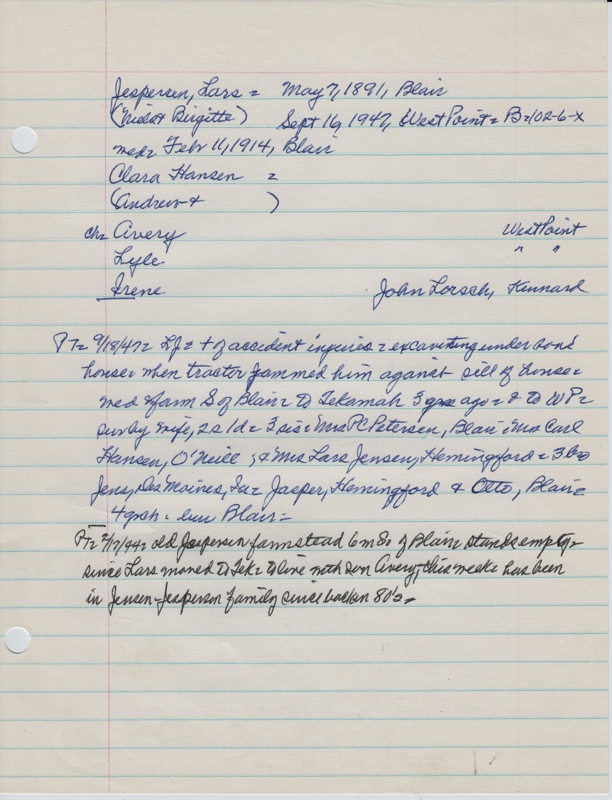 Jespersen, Lars = May 7, 1891, Blair
(Nis & Birgitte) Sept 16, 1947, West Point = B=102-6-X
med= Febr 11, 1914, Blair
Clara Hansen =
(Andrew & )
ch= Avery West Point
Lyle " "
Irene John Lorsch, Kennard
PT= 9/18/47= Lf= + of accident injuries = excavating under son's
house = when tractor jammed him against sill of house =
med & farm S of Blair = to Tekamah 3 yrs ago = & to WP=
surby wife, 2s 1d = 3 sis = Mrs PC Petersen, Blair; Mrs Carl
Hansen, O'Neill; & Mrs Lars Jensen, Hemingford = 3 bro
Jens, Des Moines, Ia = Jasper, Hemingford & Otto, Blair =
4 grch = bur Blair =
PT= 2/17/44= old Jespersen farmstead 6 m So of Blair stands empty =
since Lars moved to Tek = to live with son Avery, this week = has been
in Jensen-Jesperson family since back in 80's =